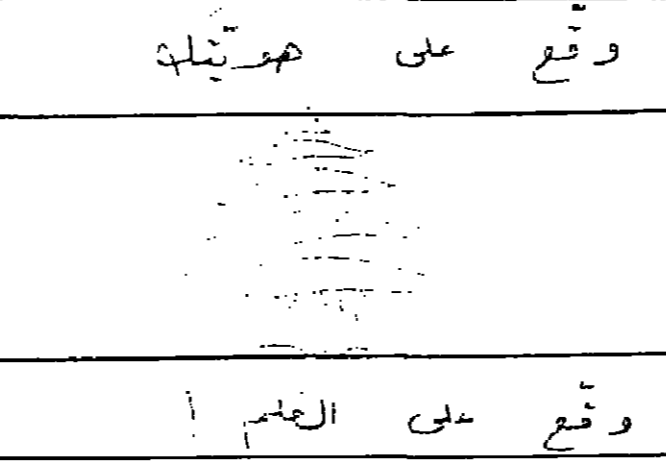 وقّع على هويّتك
وقّع على العلم !